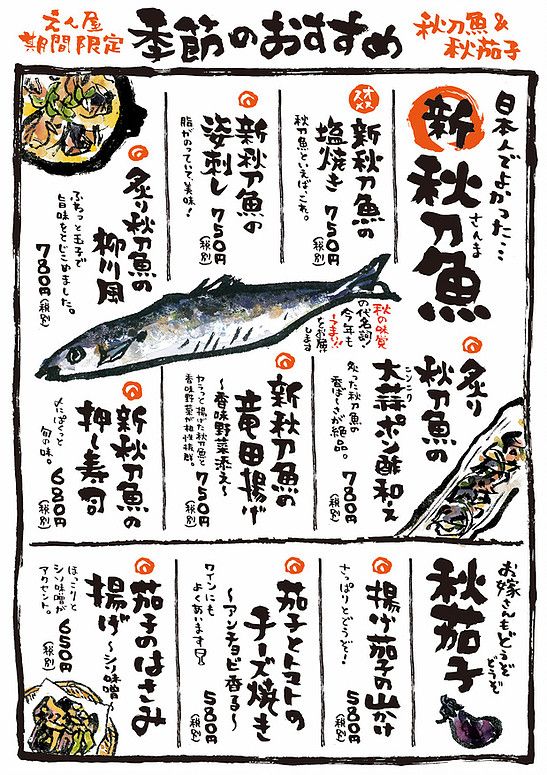 えん屋
期間限定
季節のおすすめ
秋刀魚&
秋茄子
日本人でよかった…
新
秋刀魚
さんま
オススメ
新秋刀魚の
塩焼き
750円
(税別)
秋刀魚といえば、これ。
新秋刀魚の
姿刺し
750円
(税別)
脂がのっていて、美味!
炙り秋刀魚の
柳川風
ふわっと玉子で
旨味をとじこめました。
780円
(税別)
秋の味覚
の代名詞!
今年も
うまい!!
とお願
します
炙り
秋刀魚の
大蒜ポン酢和え
ニンニク
炙った秋刀魚の
香ばしさが絶品。
780円
(税別)
新秋刀魚の
竜田揚げ
〜香味野菜添え〜
カラっと揚げた秋刀魚と
香味野菜が相性抜群。
750円
(税別)
新秋刀魚の
押し寿司
〆にぱくっと
旬の味。
680円
(税別)
お嫁さんもどうぞ
どうぞ
秋茄子
揚げ茄子の山かけ
さっぱりとどうぞ!
580円
(税別)
茄子とトマトの
チーズ焼き
〜アンチョビ香る〜
ワインにも
よくあいます
580円
(税別)
茄子のはさみ
揚げ〜シソ味噌〜
ほっこりと
シソ味噌が
アクセント。
650円
(税別)